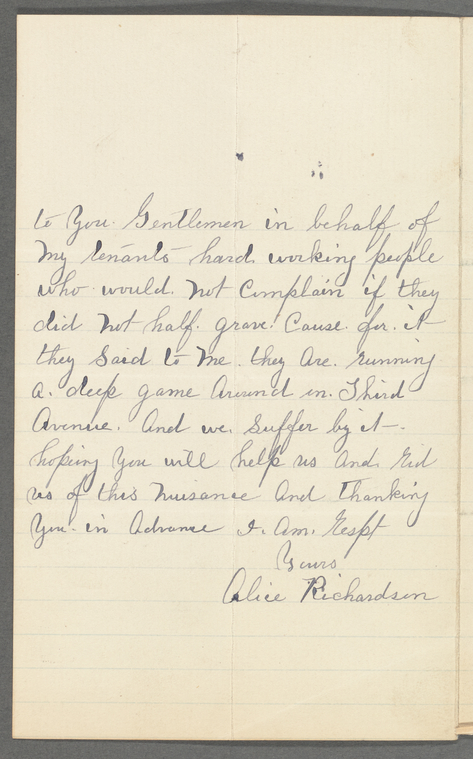 to You. Gentlemen in behalf of
My tenants hard. working people
who would. Not Complain if they
did Not half. grave. Cause. for. it
they Said to Me. they Are. running
a. deep game Around in. Third
Avenue. And we. Suffer by it -
hoping You will help us And. Rid
us of this Nuisance And Thanking
You. in Advance I. Am. Respt
Yours
Alice Richardson